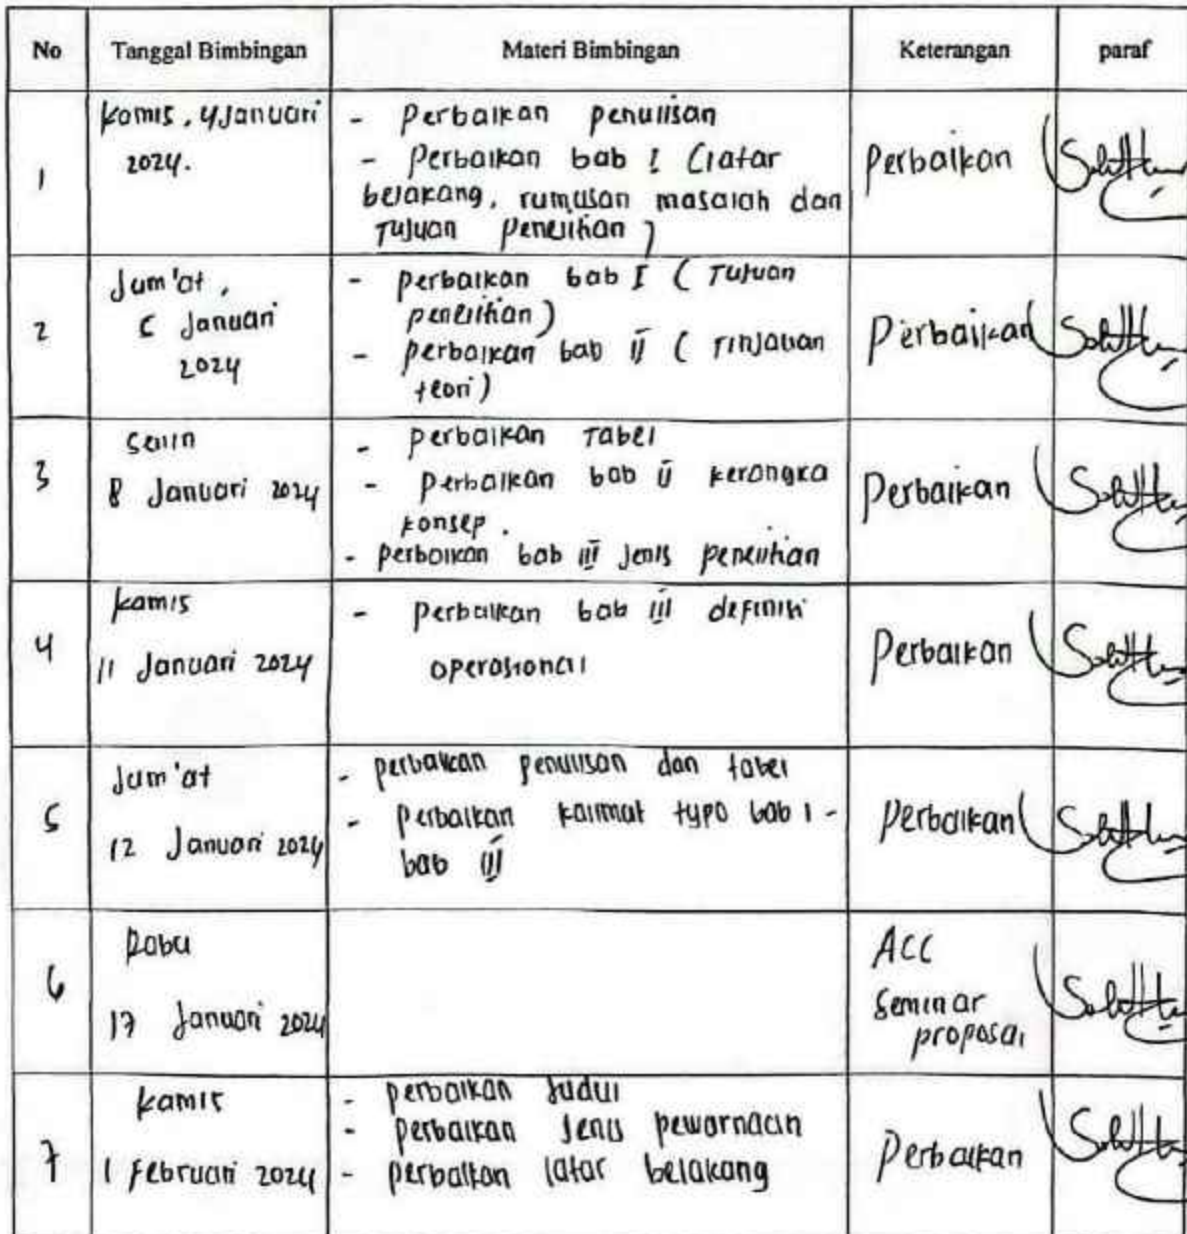 No Tanggal Bimbingan Materi Bimbingan Keterangan paraf
1
Kamis, 4 Januari
2024.
- Perbaikan penulisan
- Perbaikan bab I (latar
belakang, rumusan masalah dan
Tujuan Penelitian)
Perbaikan
2
Jum'at,
5 Januari
2024
- perbaikan bab I (Tujuan
penelitian)
- perbaikan bab II (Tinjauan
teori)
Perbaikan
3
Senin
8 Januari 2024
- perbaikan Tabel
- perbaikan bab II kerangka
konsep.
- perbaikan bab III Jenis penelitian
Perbaikan
4
Kamis
11 Januari 2024
- perbaikan bab III definisi
operasional
Perbaikan
5
Jum'at
12 Januari 2024
- perbaikan penulisan dan tabel
- perbaikan kalimat typo bab I -
bab III
Perbaikan
6
Rabu
17 Januari 2024
ACC
Seminar
proposal
7
Kamis
1 Februari 2024
- perbaikan Judul
- perbaikan Jenis pewarnaan
- perbaikan latar belakang
Perbaikan